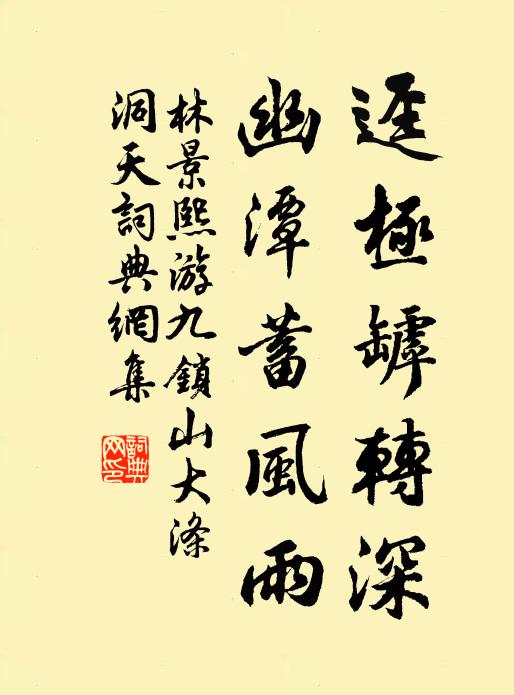 逕極罅轉深
幽潭蓄風雨
林景熙游九鎖山大滌
洞天詞典網集
詞典网印